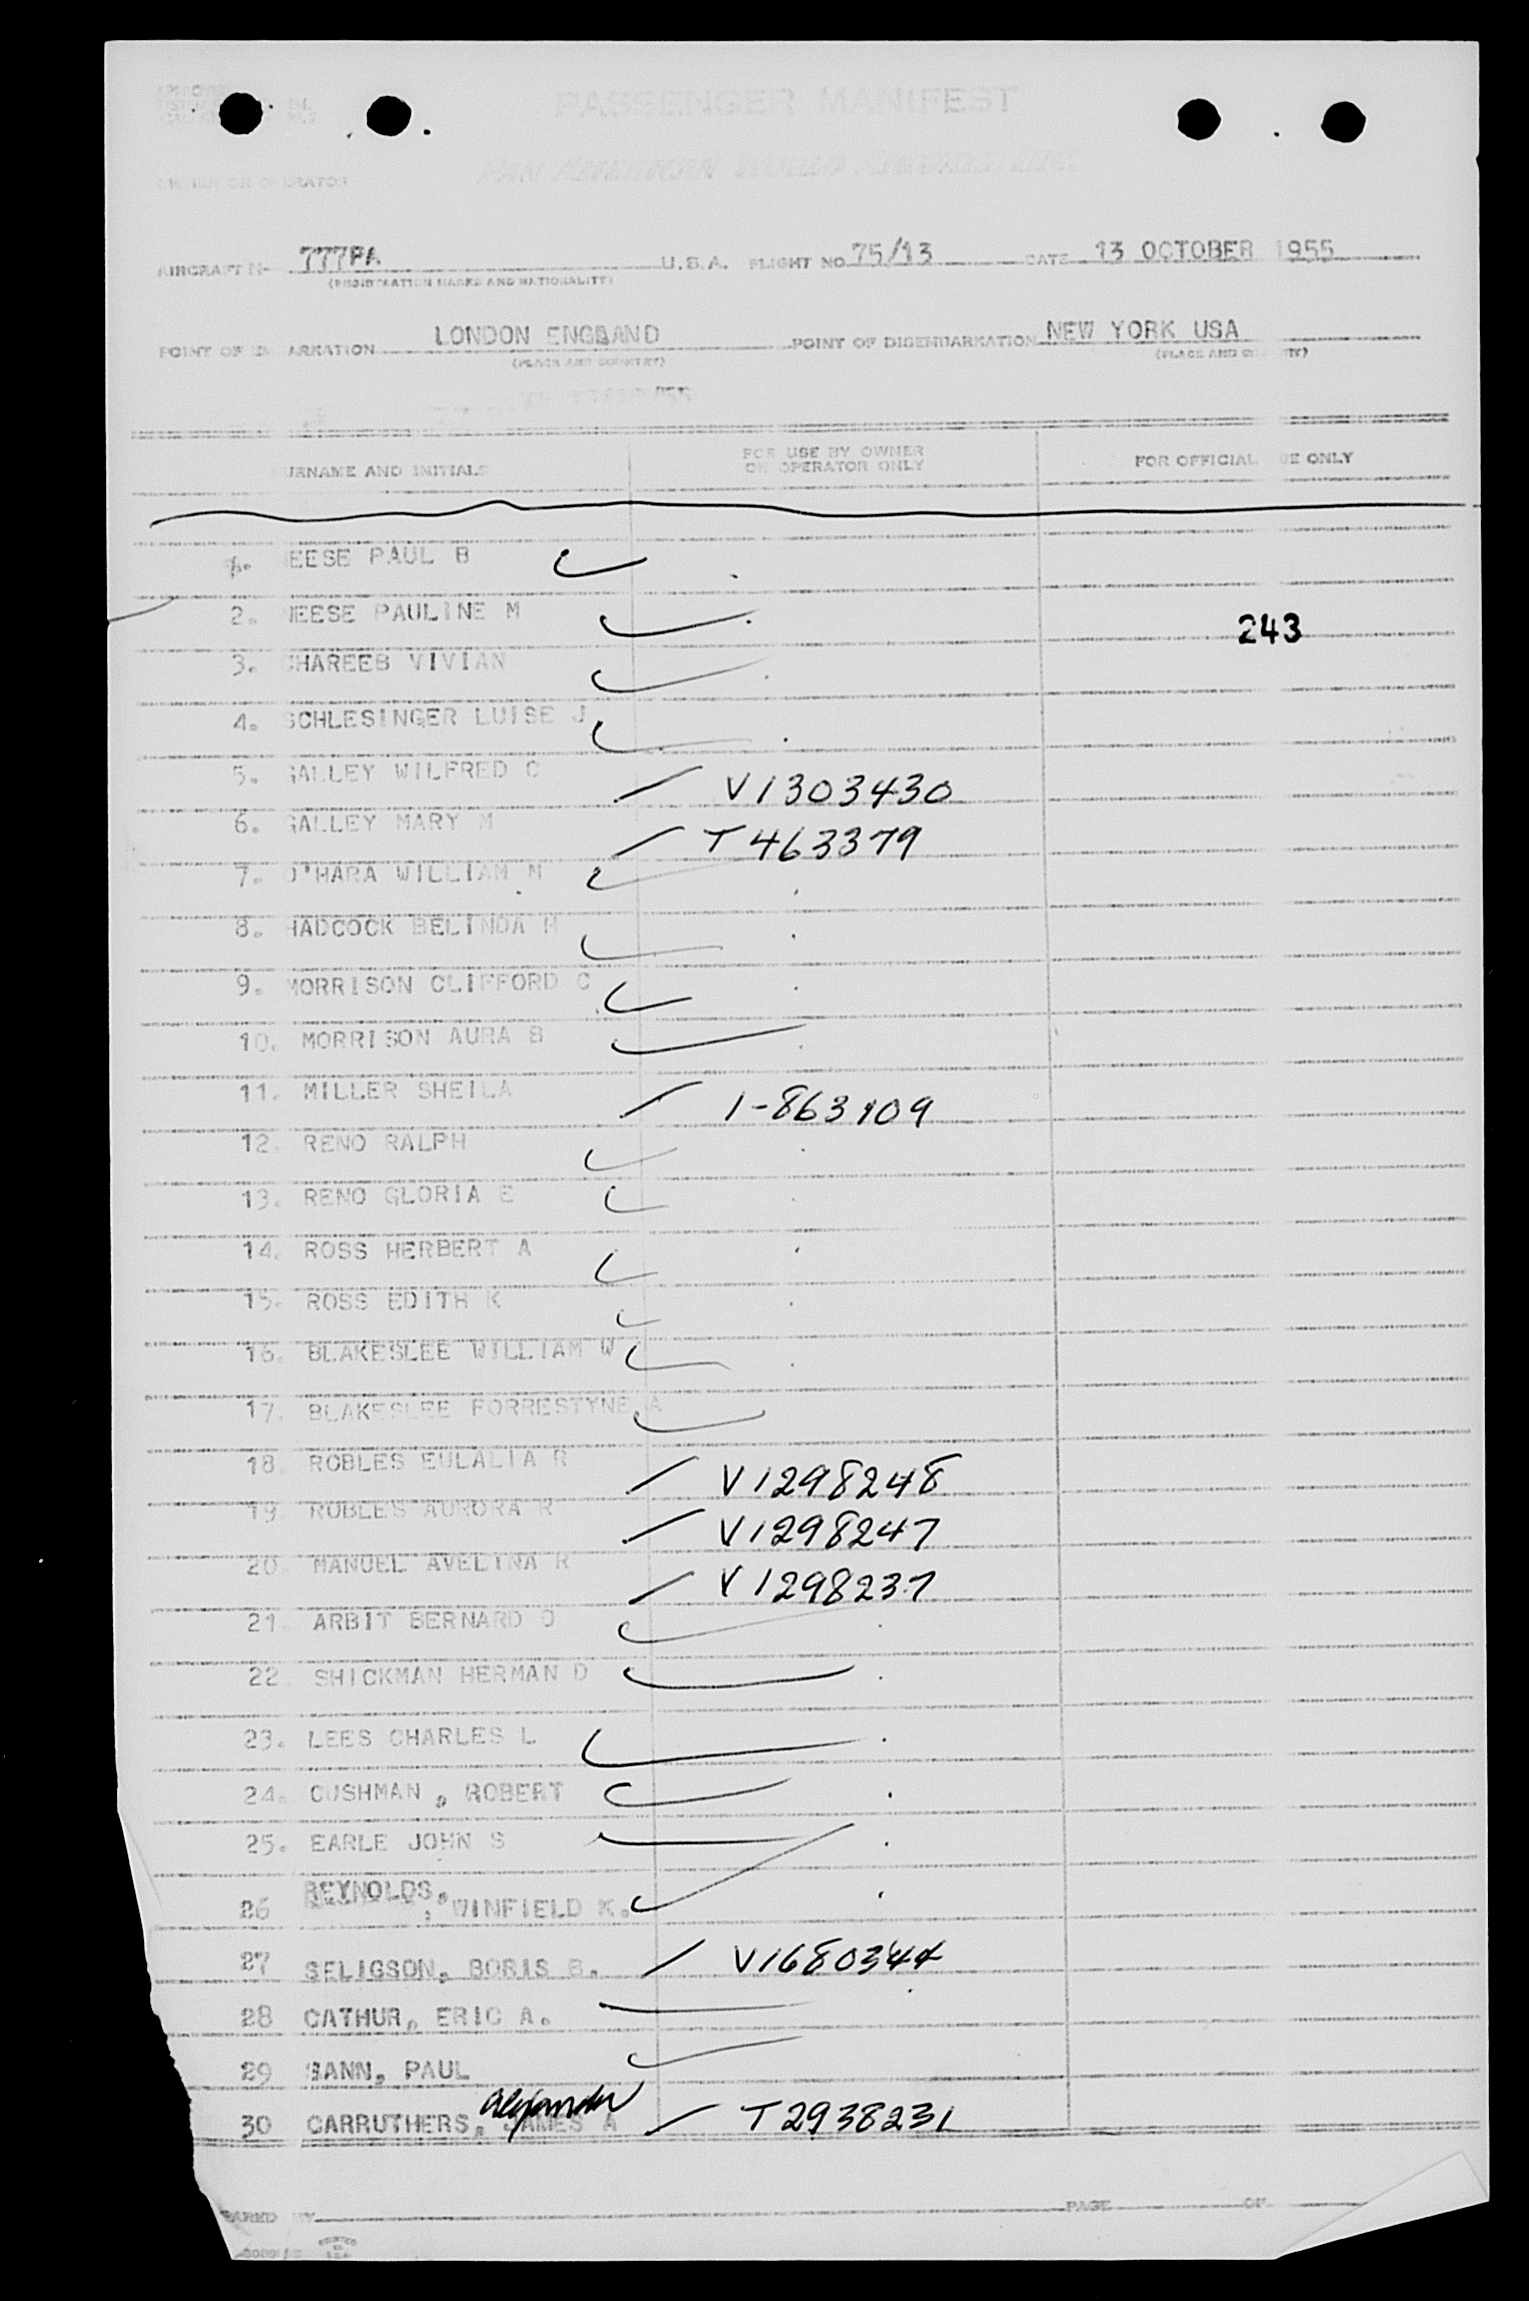 PASSENGER MANIFEST
PAN AMERICAN WORLD AIRWAYS INC.
OWNER OR OPERATOR
AIRCRAFT N- 777PA U.S.A. FLIGHT NO 75/13 DATE 13 OCTOBER 1955
(REGISTRATION MARKS AND NATIONALITY)
POINT OF EMBARKATION LONDON ENGLAND POINT OF DISEMBARKATION NEW YORK USA
(PLACE AND COUNTRY) (PLACE AND COUNTRY)
SURNAME AND INITIALS FOR USE BY OWNER OR OPERATOR ONLY FOR OFFICIAL USE ONLY
1. EESE PAUL B
2. EESE PAULINE M
243
3. HAREEB VIVIAN
4. SCHLESINGER LUISE J
5. GALLEY WILFRED C V1303430
6. GALLEY MARY M T463379
7. O'HARA WILLIAM M
8. HADCOCK BELINDA M
9. MORRISON CLIFFORD C
10. MORRISON AURA B
11. MILLER SHEILA 1-863109
12. RENO RALPH
13. RENO GLORIA E
14. ROSS HERBERT A
15. ROSS EDITH K
16. BLAKESLEE WILLIAM W
17. BLAKESLEE FORRESTYNE A
18. ROBLES EULALIA R V1298248
19 ROBLES AURORA R V1298247
20. MANUEL AVELINA R V1298237
21. ARBIT BERNARD O
22. SHICKMAN HERMAN D
23. LEES CHARLES L
24. CUSHMAN , ROBERT
25. EARLE JOHN S
26 REYNOLDS, WINFIELD K.
27 SELIGSON, BORIS B. V1680344
28 CATHUR, ERIC A.
29 GANN, PAUL
Alexander
30 CARRUTHERS, JAMES A T2938231
PAGE OF